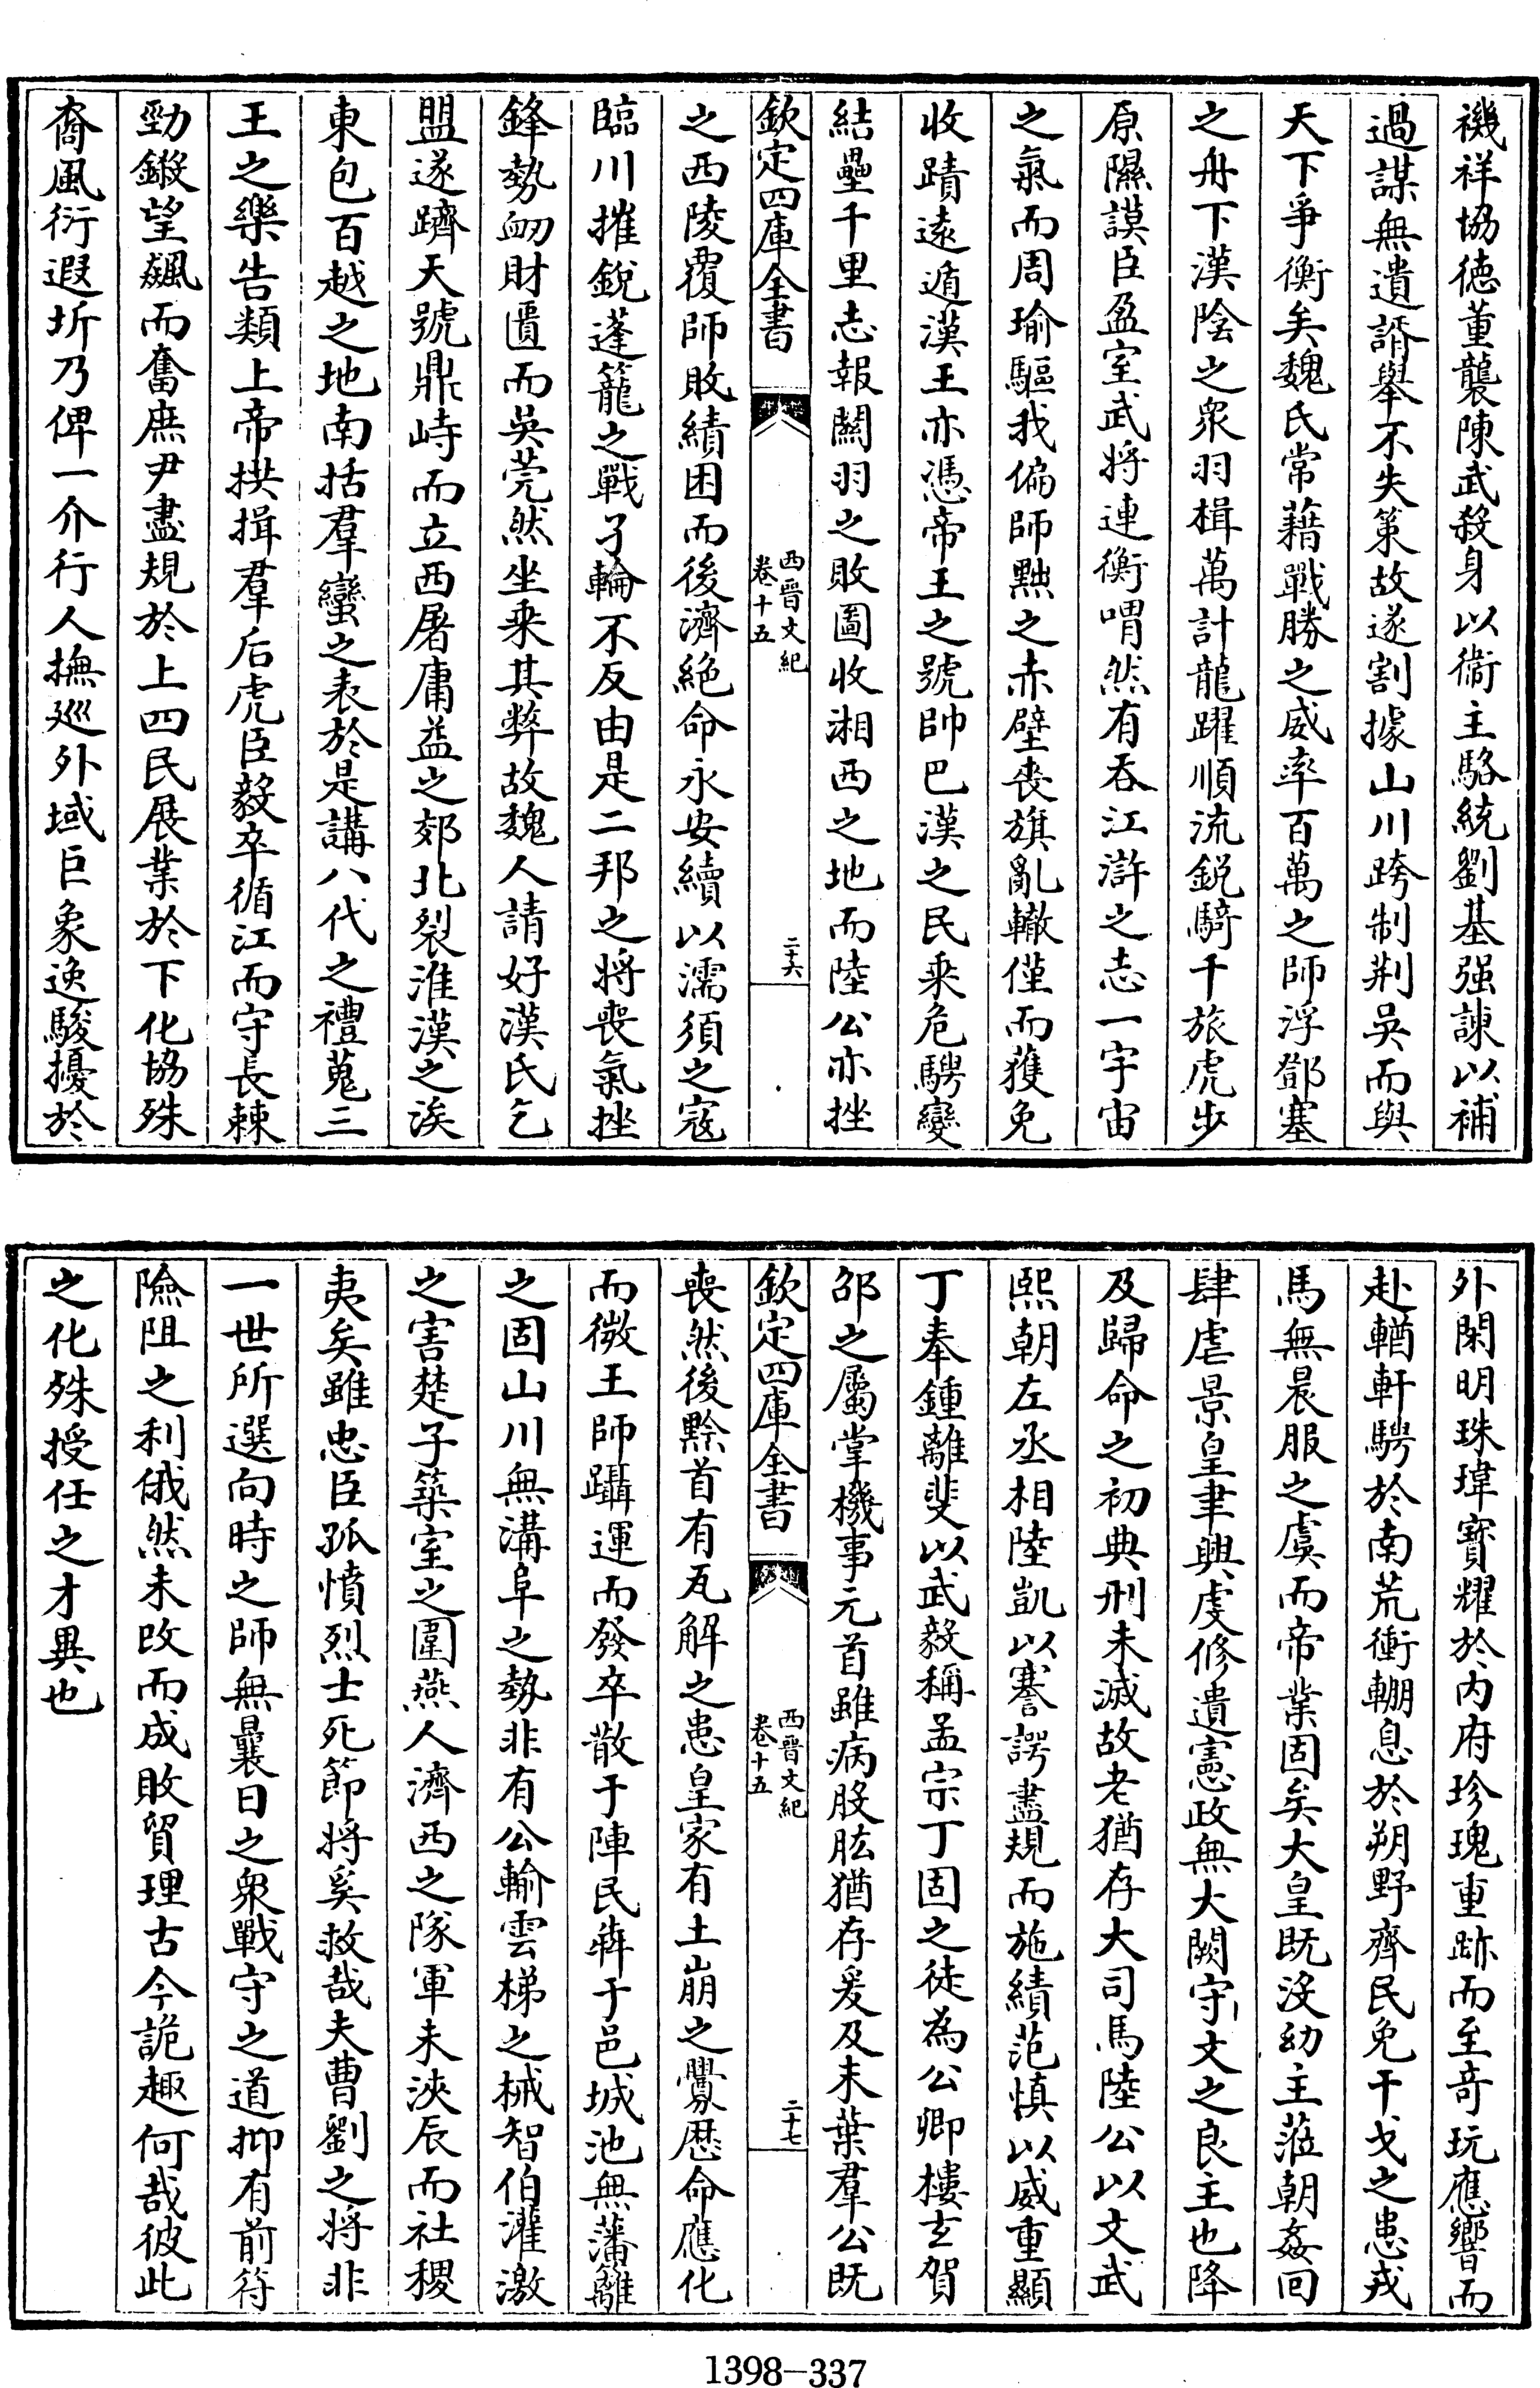 禨祥協徳董襲陳武殺身以衞主駱統劉基强諫以補
過謀無遺諝舉不失策故遂割據山川跨制荆吳而與
天下爭衡矣魏氏常藉戰勝之威率百萬之師浮鄧塞
之舟下漢陰之衆羽楫萬計龍躍順流鋭騎千旅虎步
原隰謨臣盈室武將連衡喟然有吞江滸之志一宇宙
之氣而周瑜驅我偏師黜之赤壁喪旗亂轍僅而獲免
收蹟遠遁漢王亦憑帝王之號帥巴漢之民乘危騁變
結壘千里志報關羽之敗圖收湘西之地而陸公亦挫
欽定四庫全書 西晉文紀 卷十五 二十六
之西陵覆師敗績困而後濟絶命永安續以濡須之寇
臨川摧銳蓬籠之戰孑輪不反由是二邦之將喪氣挫
鋒勢衂財匱而吳莞然坐乘其弊故魏人請好漢氏乞
盟遂躋天號鼎峙而立西屠庸益之郊北裂淮漢之涘
東包百越之地南括羣蠻之表於是講八代之禮蒐三
王之樂告類上帝拱揖羣后虎臣毅卒循江而守長棘
勁鎩望飆而奮庶尹盡規於上四民展業於下化協殊
裔風衍遐圻乃俾一介行人撫廵外域巨象逸駿擾於
外閑明珠瑋寳耀於内府珍瑰重跡而至奇玩應響而
赴輶軒騁於南荒衝輣息於朔野齊民免干戈之患戎
馬無晨服之虞而帝業固矣大皇既沒幼主蒞朝姦回
肆虐景皇聿興虔修遺憲政無大闕守文之良主也降
及歸命之初典刑未滅故老猶存大司馬陸公以文武
熙朝左丞相陸凱以謇諤盡規而施績范慎以威重顯
丁奉鍾離斐以武毅稱孟宗丁固之徒為公卿樓玄賀
邵之屬掌機事元首雖病股肱猶存爰及末葉羣公既
欽定四庫全書 西晉文紀 卷十五 二十七
喪然後黔首有瓦解之患皇家有土崩之釁歴命應化
而微王師躡運而發卒散于陣民奔于邑城池無藩籬
之固山川無溝阜之勢非有公輸雲梯之械智伯灌激
之害楚子築室之圍燕人濟西之隊軍未浹辰而社稷
夷矣雖忠臣孤憤烈士死節將奚救哉夫曹劉之將非
一世所選向時之師無曩日之衆戰守之道抑有前符
險阻之利俄然未改而成敗貿理古今詭趣何哉彼此
之化殊授任之才異也
1398-337